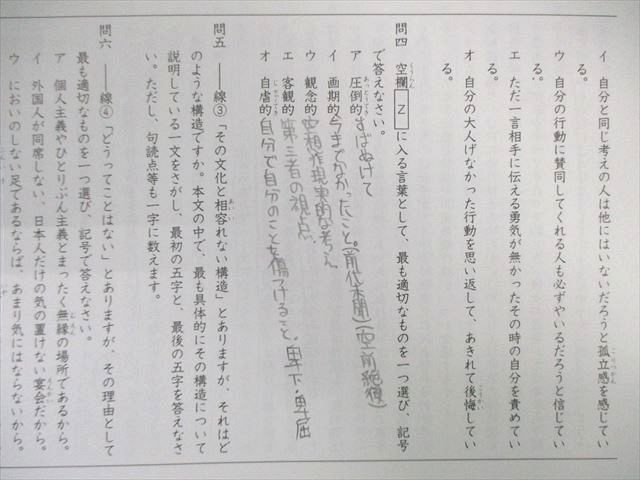 イ 自分と同じ考えの人は他にはいないだろうと孤立感を感じてい
る。
ウ 自分の行動に賛同してくれる人も必ずやいるだろうと信じてい
る。
エ ただ一言相手に伝える勇気が無かったその時の自分を責めてい
る。
オ 自分の大人げなかった行動を思い返して、あきれて後悔してい
る。
問四 空欄 Z に入る言葉として、最も適切なものを一つ選び、記号
で答えなさい。
ア 圧倒的 ずばぬけて
イ 画期的 今までなかったこと。(前代未聞)(空前絶後)
ウ 観念的 空想 非現実的な考え
エ 客観的 第三者の視点
オ 自虐的 自分で自分のことを傷つけること。卑下・卑屈
問五 ――線③「その文化と相容れない構造」とありますが、それはど
のような構造ですか。本文の中で、最も具体的にその構造について
説明している一文をさがし、最初の五字と、最後の五字を答えなさ
い。ただし、句読点等も一字に数えます。
問六 ――線④「どうってことはない」とありますが、その理由として
最も適切なものを一つ選び、記号で答えなさい。
ア 個人主義やひとりぶん主義とまったく無縁の場所であるから。
イ 外国人が同席しない、日本人だけの気の置けない宴会だから。
ウ においのしない足であるならば、あまり気にはならないから。